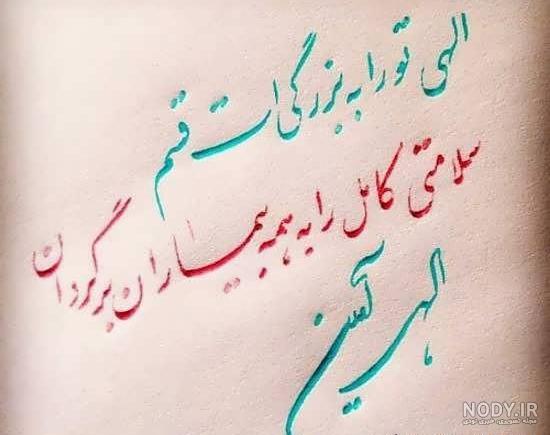 الهی تو را به بزرگی ات قسم
سلامتی کامل را به همه بیماران برگردان
الهی آمین
NODY.IR